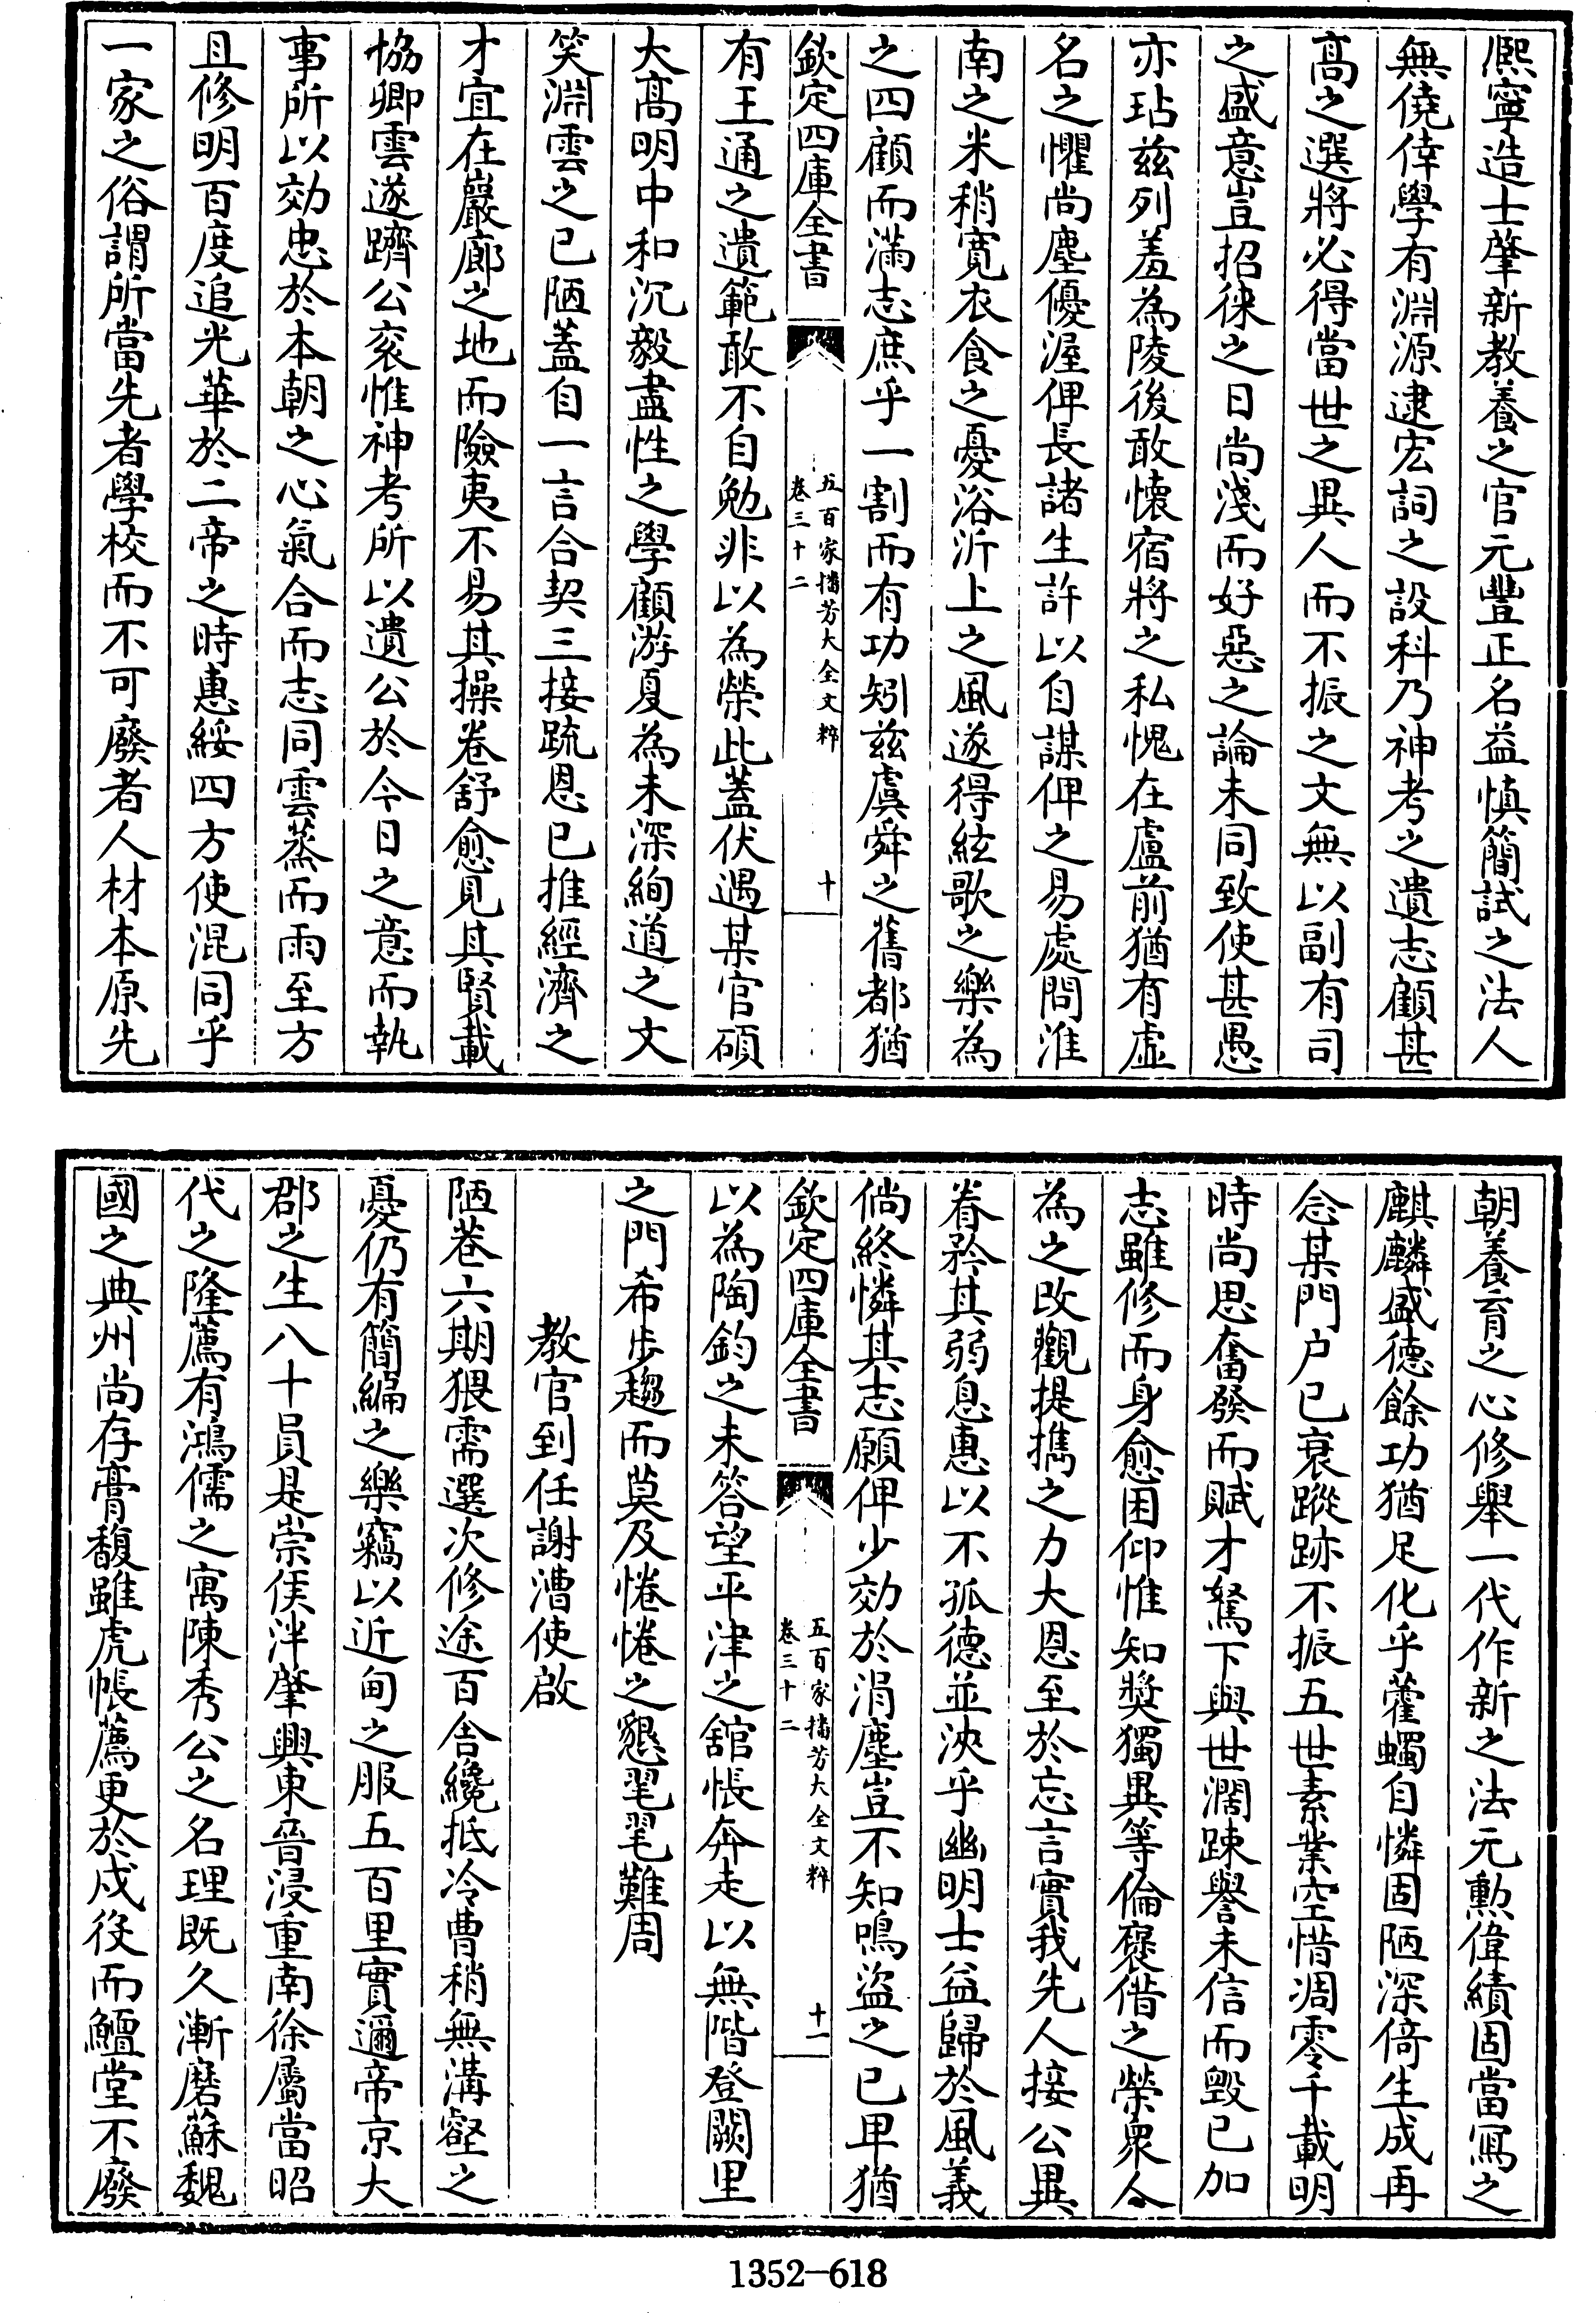 熈寧造士肇新教養之官元豐正名益慎簡試之法人
無僥倖學有淵源逮宏詞之設科乃神考之遺志顧甚
髙之選將必得當世之異人而不振之文無以副有司
之盛意豈招徠之日尚淺而好惡之論未同致使甚愚
亦玷兹列羞為陵後敢懐宿將之私愧在盧前猶有虚
名之懼尚塵優渥俾長諸生許以自謀俾之易處問淮
南之米稍寛衣食之憂浴沂上之風遂得絃歌之樂為
之四顧而滿志庶乎一割而有功矧兹虞舜之舊都猶
欽定四庫全書
五百家播芳大全文粹
卷三十二
十
有王通之遺範敢不自勉非以為榮此葢伏遇某官碩
大髙明中和沉毅盡性之學顧游夏為未深絢道之文
笑淵雲之已陋葢自一言合契三接疏恩已推經濟之
才宜在巖廊之地而險夷不易其操卷舒愈見其賢載
恊卿雲遂躋公衮惟神考所以遺公於今日之意而執
事所以効忠於本朝之心氣合而志同雲蒸而雨至方
且修明百度追光華於二帝之時惠綏四方使混同乎
一家之俗謂所當先者學校而不可廢者人材本原先
朝養育之心修舉一代作新之法元勲偉績固當冩之
麒麟盛徳餘功猶足化乎藿蠋自憐固陋深倚生成再
念某門户已衰蹤跡不振五世素業空惜凋零千載明
時尚思奮發而賦才駑下與世濶踈譽未信而毁已加
志雖修而身愈困仰惟知奬獨異等倫褒借之榮衆人
為之改觀提携之力大恩至於忘言實我先人接公異
眷矜其弱息惠以不孤德並浹乎幽明士益歸於風義
倘終憐其志願俾少効於涓塵豈不知鳴盜之已卑猶
欽定四庫全書
五百家播芳大全文粹
卷三十二
十一
以為陶鈞之未答望平津之舘悵奔走以無階登闕里
之門希步趨而莫及惓惓之懇毣毣難周
教官到任謝漕使啟
陋巷六期猥需選次修途百舍纔抵冷曹稍無溝壑之
憂仍有簡編之樂竊以近甸之服五百里實邇帝京大
郡之生八十員是崇侯泮肇興東晉浸重南徐屬當昭
代之隆薦有鴻儒之寓陳秀公之名理既久漸磨蘇魏
國之典州尚存膏馥雖虎帳薦更於戍役而鱣堂不廢
1352-618